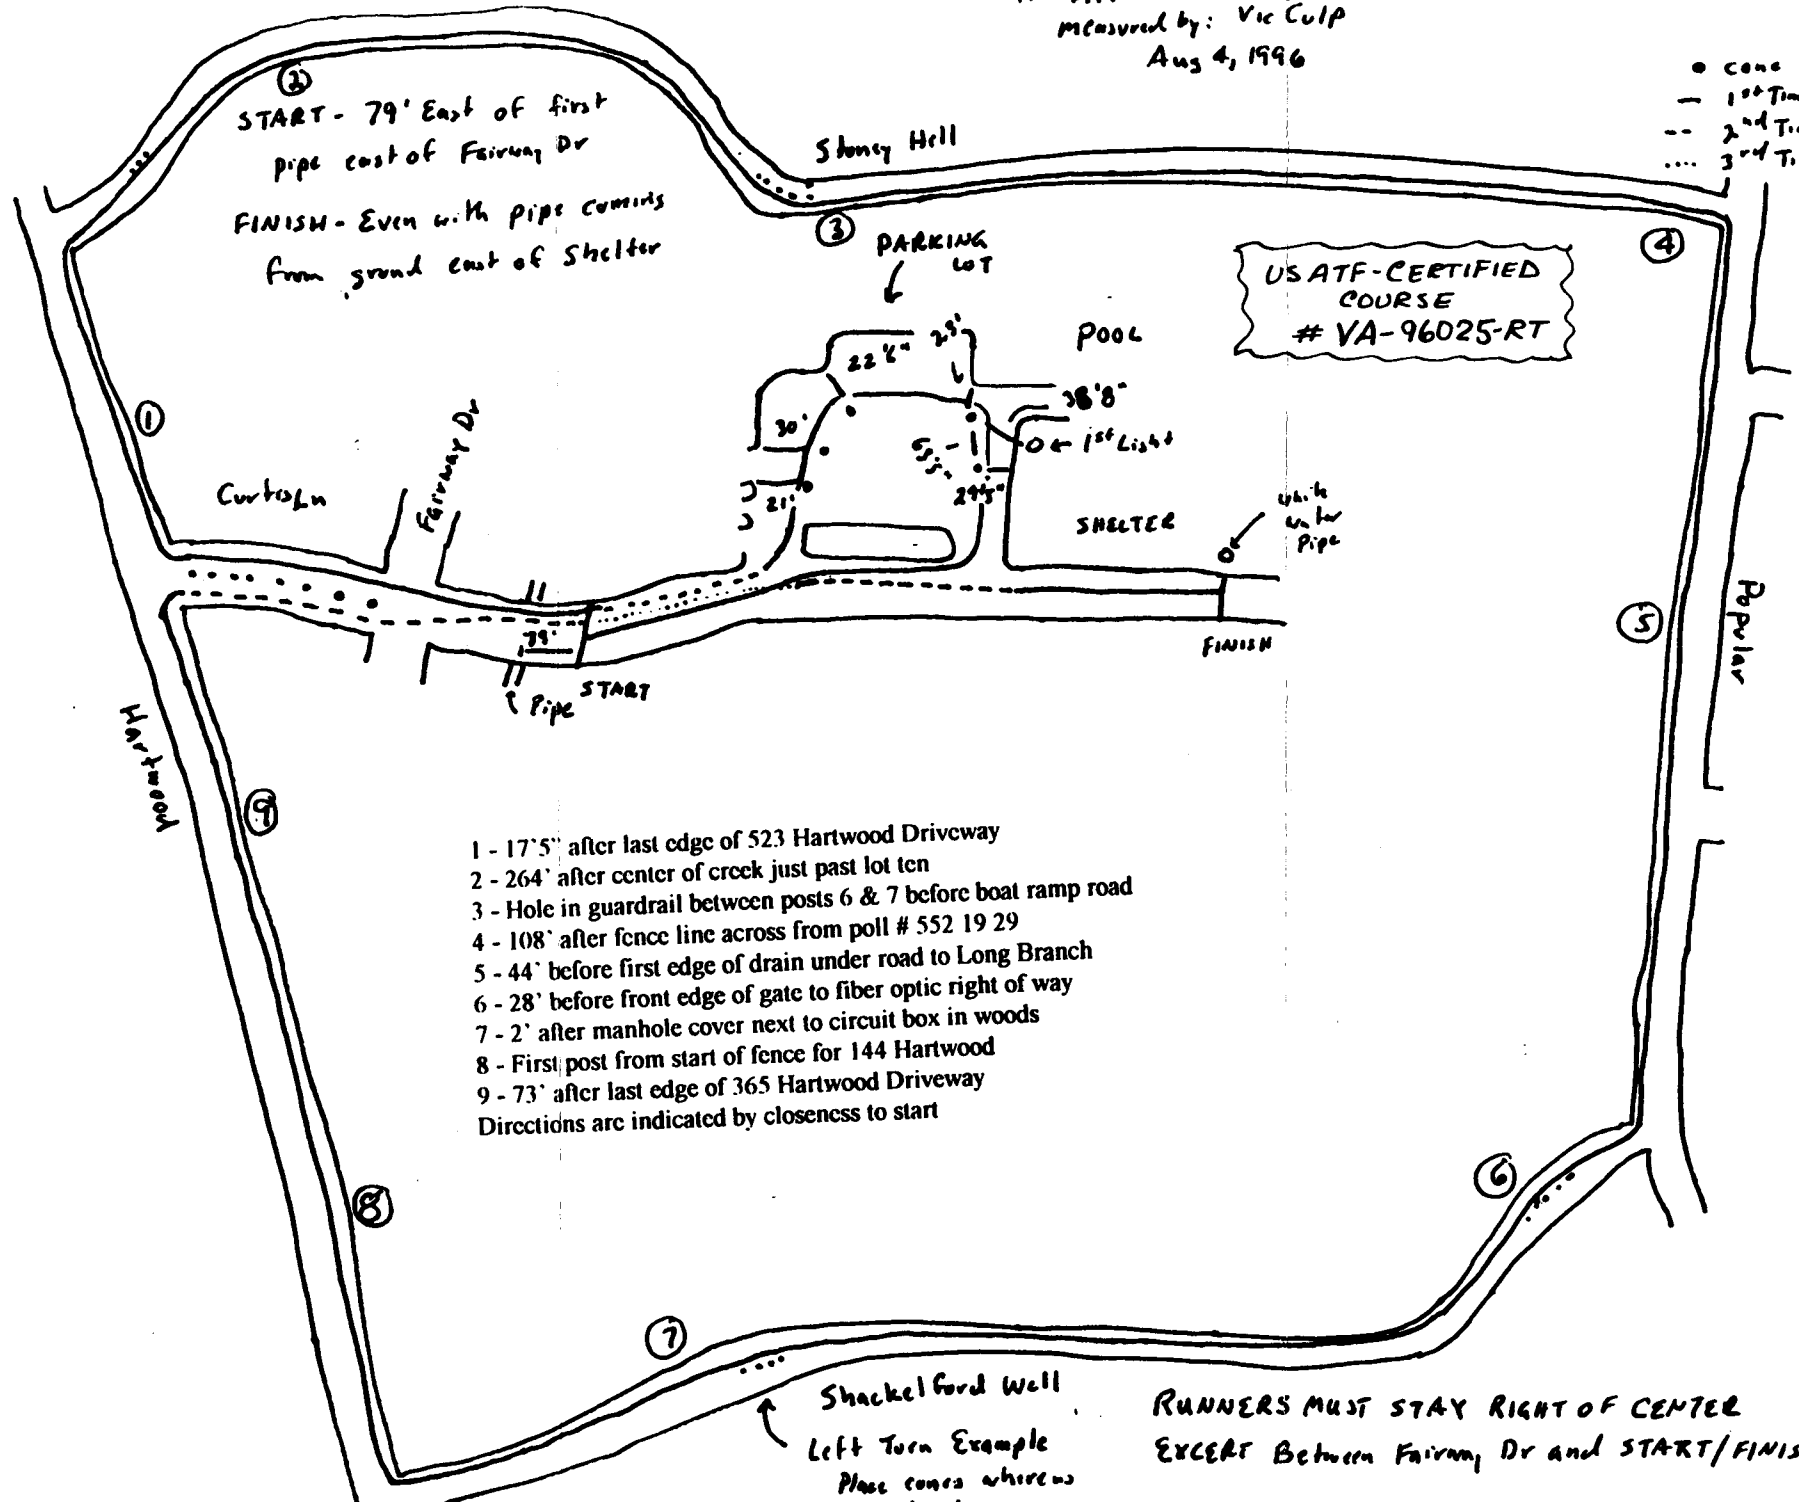 measured by: Vic Culp
Aug 4, 1996
cone
1st
2nd
3rd
2
START - 79' East of first
pipe east of Fairway Dr
FINISH - Even with pipe coming
from ground east of Shelter
Stoney Hell
3
4
PARKING
LOT
USATF-CERTIFIED
COURSE
# VA-96025-RT
POOL
22'6"
38'8"
30'
1st Light
1
Curtis Ln
Fairway Dr
21'
SHELTER
white
water
pipe
79'
START
Pipe
FINISH
5
Popular
Hartwood
9
1 - 17'5" after last edge of 523 Hartwood Driveway
2 - 264' after center of creek just past lot ten
3 - Hole in guardrail between posts 6 & 7 before boat ramp road
4 - 108' after fence line across from poll # 552 19 29
5 - 44' before first edge of drain under road to Long Branch
6 - 28' before front edge of gate to fiber optic right of way
7 - 2' after manhole cover next to circuit box in woods
8 - First post from start of fence for 144 Hartwood
9 - 73' after last edge of 365 Hartwood Driveway
Directions are indicated by closeness to start
6
8
7
Shackelford Well
Left Turn Example
Place cones where as
RUNNERS MUST STAY RIGHT OF CENTER
EXCERT Between Fairway Dr and START/FINIS